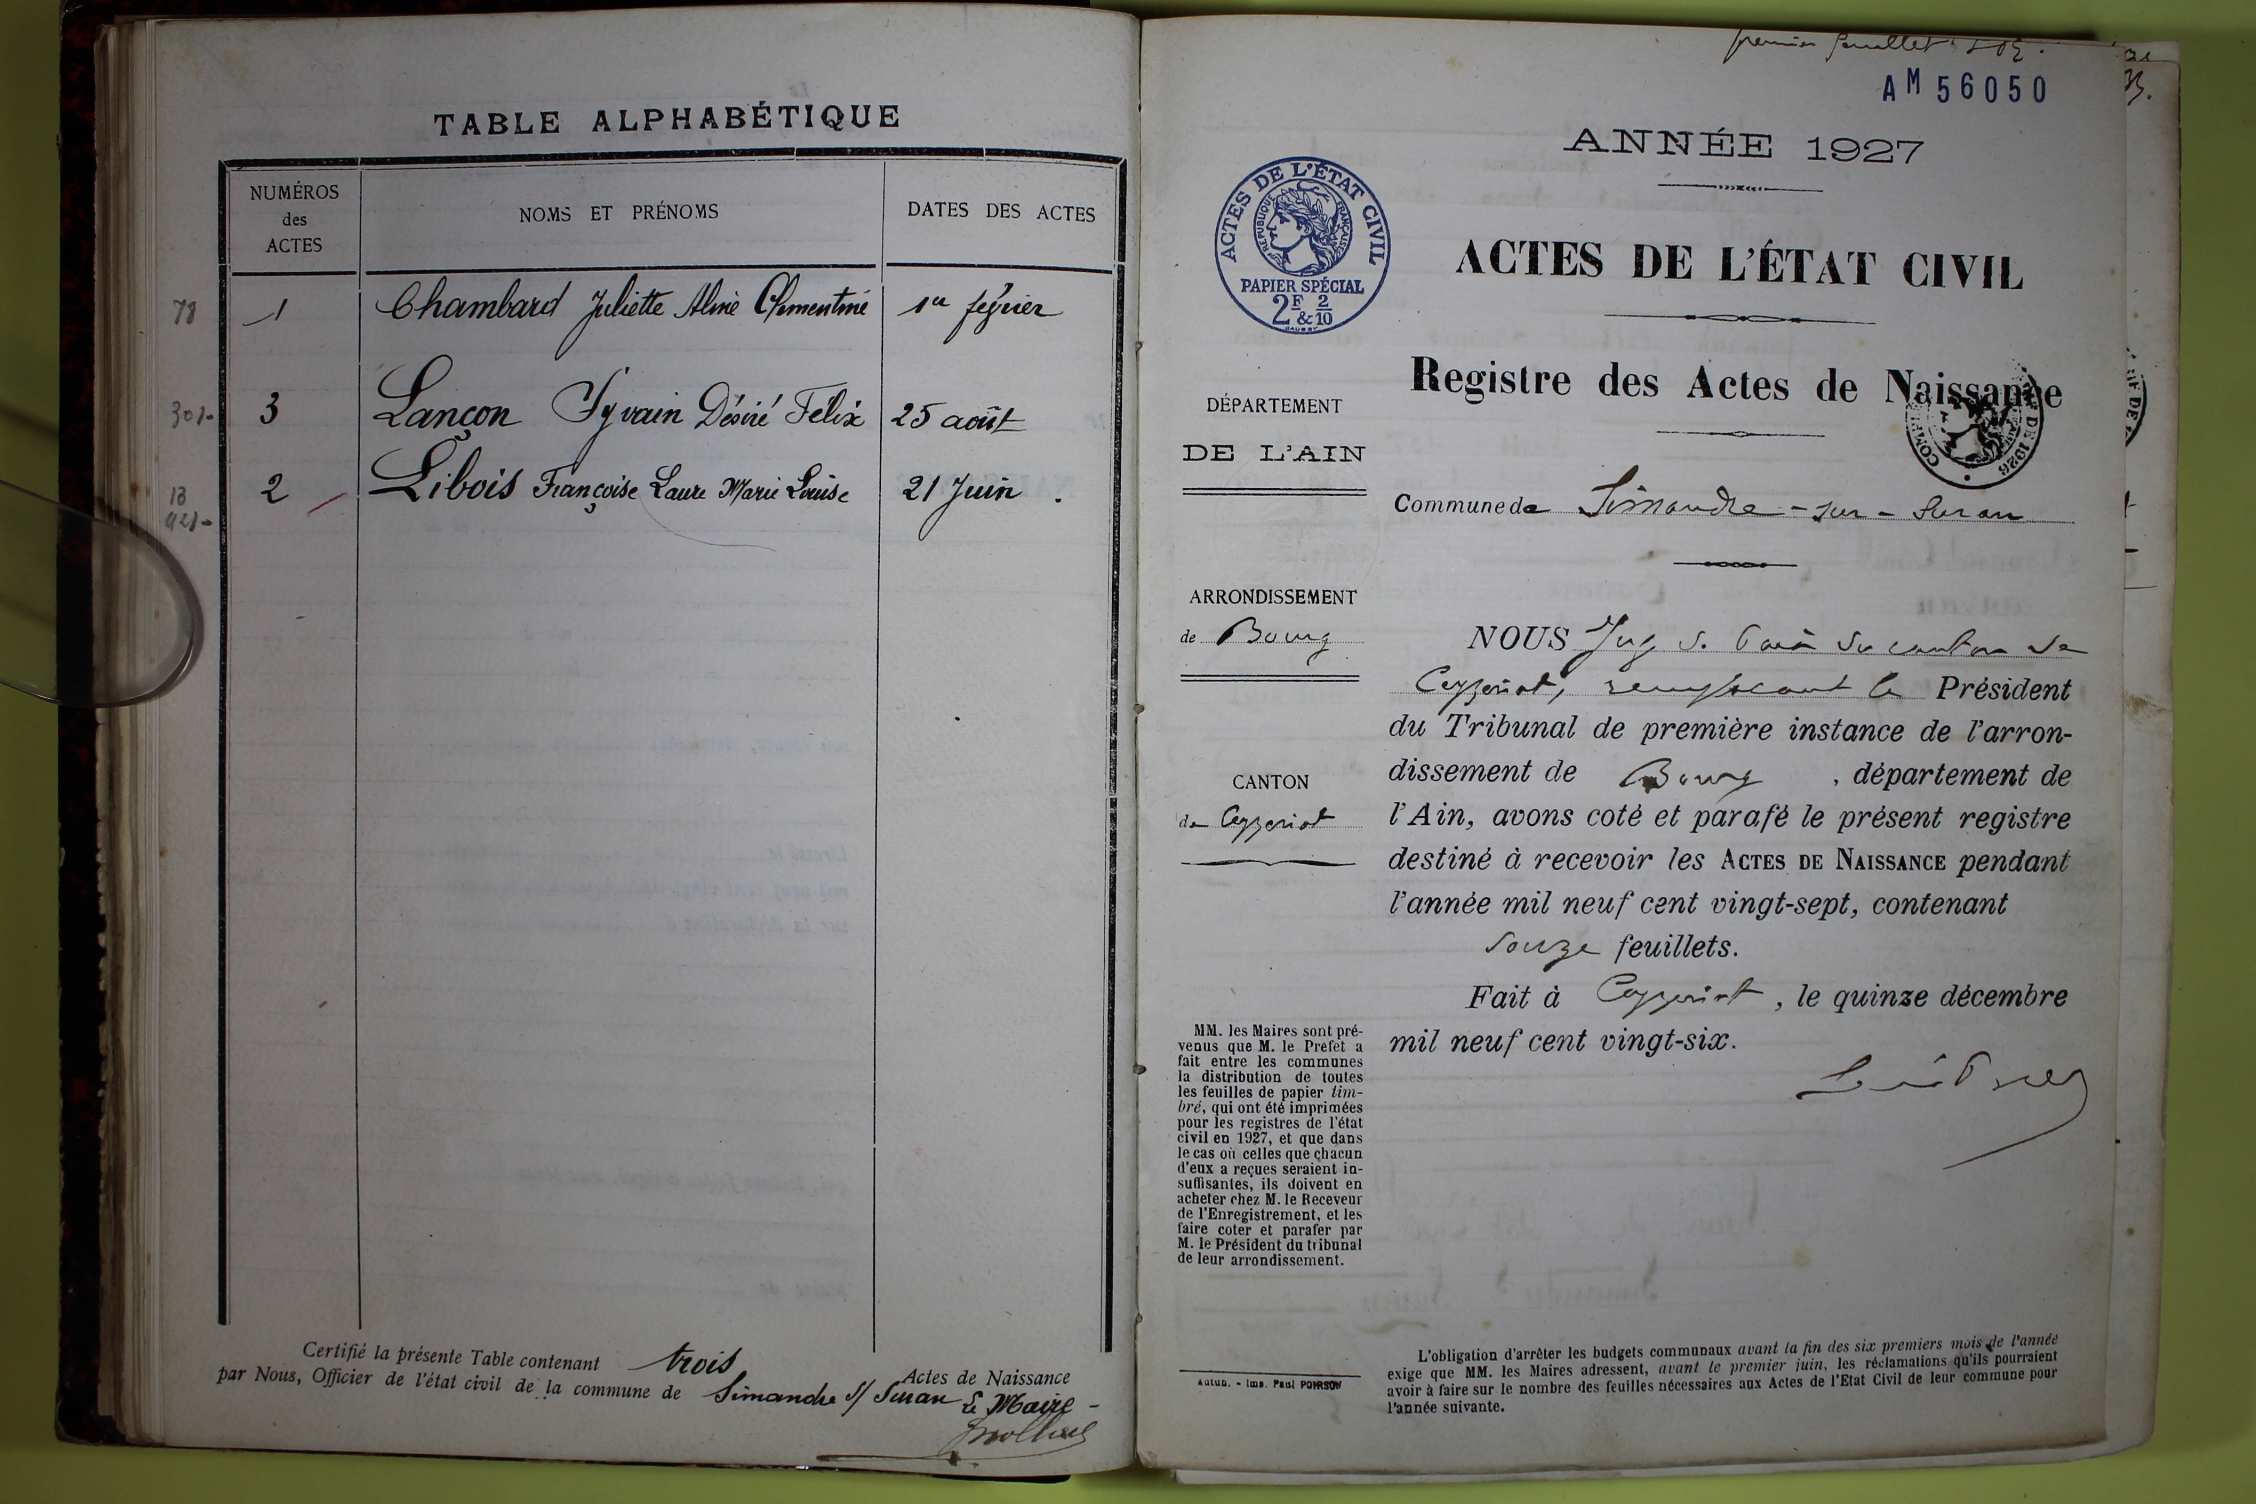 TABLE ALPHABÉTIQUE
NUMÉROS
des
ACTES
NOMS ET PRÉNOMS
DATES DES ACTES
78 1 Chambard Juliette Aline Clémentine 1er février
301- 3 Lançon Sylvain Désiré Félix 25 août
13
921- 2 Libois Françoise Laure Marie Louise 21 Juin.
Certifié la présente Table contenant trois Actes de Naissance
par Nous, Officier de l'état civil de la commune de Simandre s/ Suran
Le Maire
premier feuillet
AM 56050
ANNÉE 1927
ACTES DE L'ÉTAT CIVIL
RÉPUBLIQUE FRANÇAISE
PAPIER SPÉCIAL
2F & 2/10
ACTES DE L'ÉTAT CIVIL
Registre des Actes de Naissance
DÉPARTEMENT
DE L'AIN
Commune de Simandre-sur-Suran
ARRONDISSEMENT
de Bourg
CANTON
de Ceyzeriat
NOUS Juge de Paix du canton de
Ceyzeriat, remplaçant le Président
du Tribunal de première instance de l'arron-
dissement de Bourg, département de
l'Ain, avons coté et parafé le présent registre
destiné à recevoir les ACTES DE NAISSANCE pendant
l'année mil neuf cent vingt-sept, contenant
douze feuillets.
Fait à Ceyzeriat, le quinze décembre
mil neuf cent vingt-six.
MM. les Maires sont pré-
venus que M. le Prefet a
fait entre les communes
la distribution de toutes
les feuilles de papier tim-
bré, qui ont été imprimées
pour les registres de l'état
civil en 1927, et que dans
le cas où celles que chacun
d'eux a reçues seraient in-
suffisantes, ils doivent en
acheter chez M. le Receveur
de l'Enregistrement, et les
faire coter et parafer par
M. le Président du tribunal
de leur arrondissement.
Autun. - Imp. Paul POIRSON
L'obligation d'arrêter les budgets communaux avant la fin des six premiers mois de l'année
exige que MM. les Maires adressent, avant le premier juin, les réclamations qu'ils pourraient
avoir à faire sur le nombre des feuilles nécessaires aux Actes de l'Etat Civil de leur commune pour
l'année suivante.